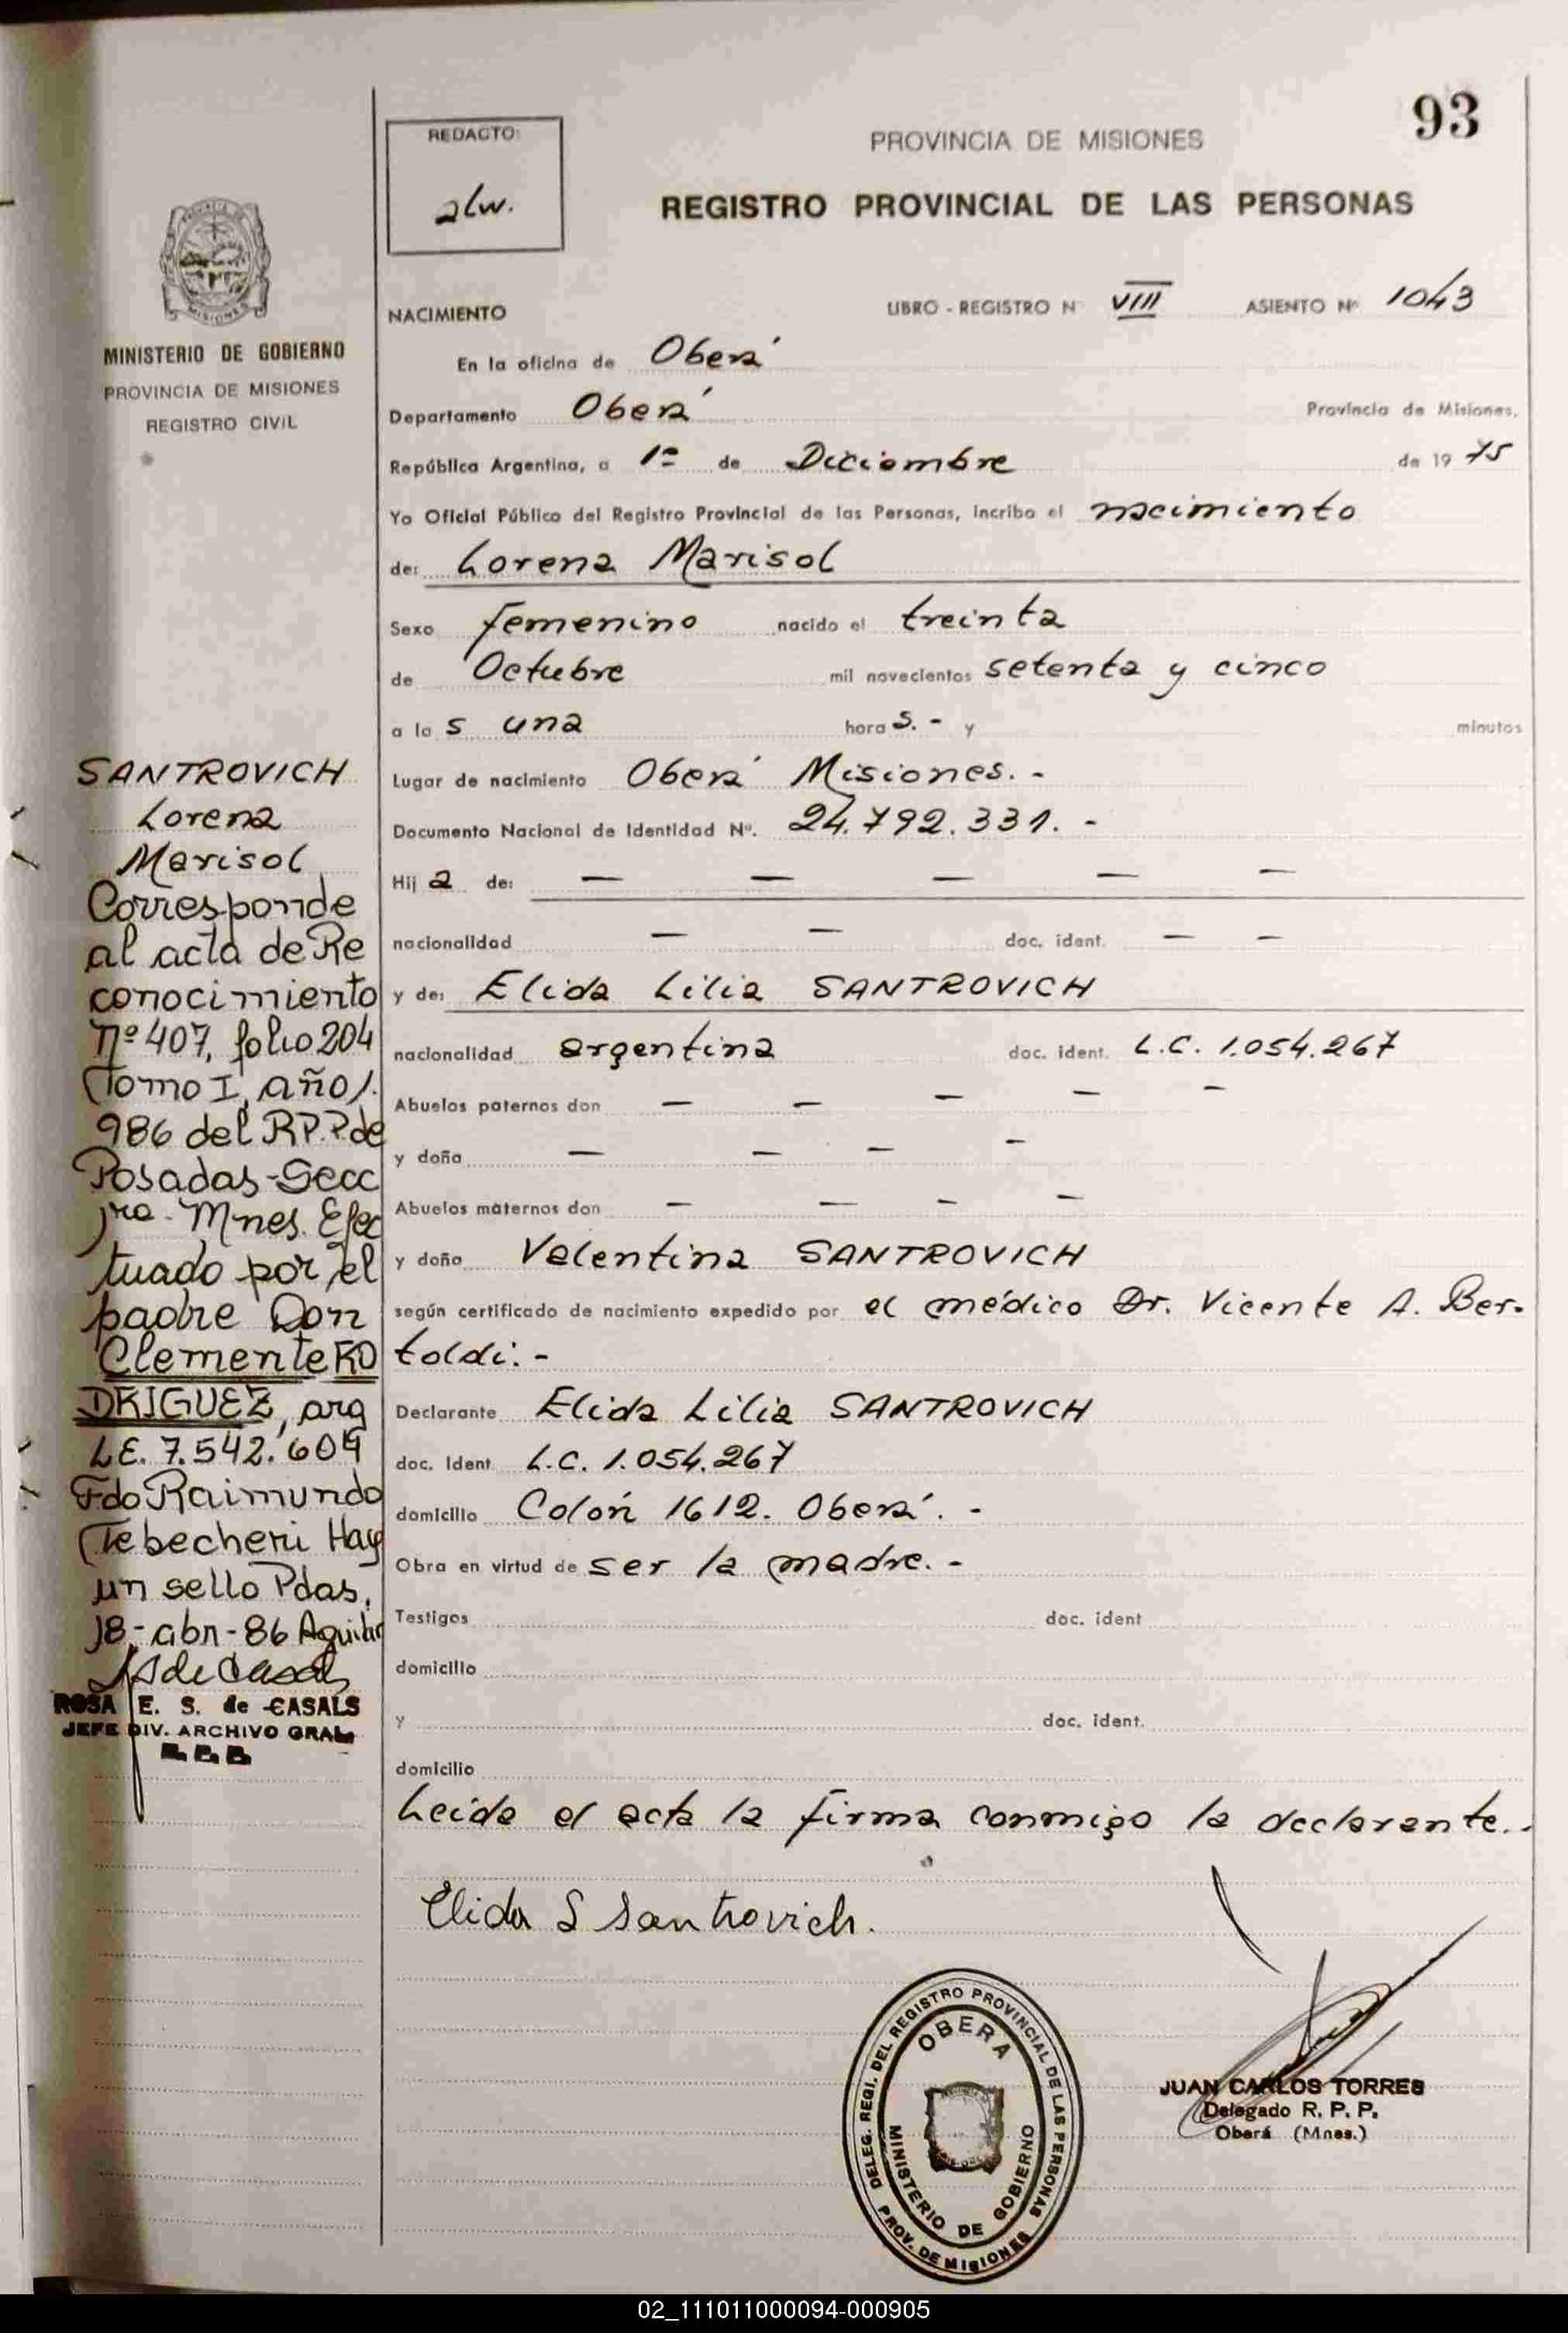 93
REDACTO:
alw.
PROVINCIA DE MISIONES
REGISTRO PROVINCIAL DE LAS PERSONAS
MINISTERIO DE GOBIERNO
PROVINCIA DE MISIONES
REGISTRO CIVIL
NACIMIENTO LIBRO - REGISTRO N VIII ASIENTO Nº 1043
En la oficina de Oberá
Departamento Oberá Provincia de Misiones,
República Argentina, a 1º de Diciembre de 19 75
Yo Oficial Público del Registro Provincial de las Personas, incribo el nacimiento
de: Lorena Marisol
Sexo femenino nacido el treinta
de Octubre mil novecientos setenta y cinco
a la s una hora s. - y minutos
Lugar de nacimiento Oberá Misiones. -
Documento Nacional de Identidad Nº. 24.792.331. -
Hij a de: — — — — —
nacionalidad — — doc. ident. — —
y de: Elida Lilia SANTROVICH
nacionalidad argentina doc. ident. L.C. 1.054.267
Abuelos paternos don — — — — —
y doña — — — —
Abuelos maternos don — — — —
y doña Valentina SANTROVICH
según certificado de nacimiento expedido por el médico Dr. Vicente A. Ber-
toldi. -
Declarante Elida Lilia SANTROVICH
doc. Ident. L.C. 1.054.267
domicilio Colón 1612. Oberá. -
Obra en virtud de ser la madre. -
Testigos doc. ident
domicilio
y doc. ident.
domicilio
Leida el acta la firma conmigo la declarante. -
Elida S Santrovich.
SANTROVICH
Lorena
Marisol
Corresponde
al acta de Re
conocimiento
Nº 407, folio 204
Tomo I, año 1.
986 del R.P.P de
Posadas-Secc
1ra. Mnes. Efec
tuado por el
padre Don
Clemente RO
DRIGUEZ, arg
L.E. 7.542.609
Fdo Raimundo
Tebecheri Hay
un sello Pdas,
18-abr-86 Aguilar
S de Casals
ROSA E. S. de CASALS
JEFE DIV. ARCHIVO GRAL
DELEG. REGI. DEL REGISTRO PROVINCIAL DE LAS PERSONAS
PROV. DE MISIONES
OBERA
MINISTERIO DE GOBIERNO
JUAN CARLOS TORRES
Delegado R. P. P.
Oberá (Mnes.)
02_111011000094-000905